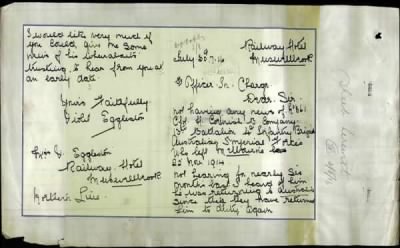 Railway Hotel
Muswellbrook
July 30th. 16
Officer In. Charge
Dear Sir
not having any news of
Company
1st Battalion 1st Infantry Brigade
Australian Imperial Forces
who left Melbourne
22 Nov 1914
not hearing for nearly six
months last I heard of him
he was returning to Australia
Since then they have returned
him to duty again
I would like very much if
you could give me some
news of his whereabouts
trusting to hear from you at
an early date.
Yours Faithfully
Violet Eggleston
Eggleston
Railway Hotel
Muswellbrook
Northern Line